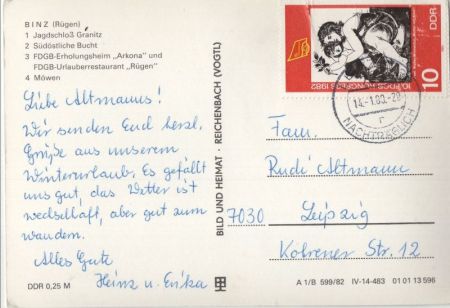 BINZ (Rügen)
1 Jagdschloß Granitz
2 Südöstliche Bucht
3 FDGB-Erholungsheim „Arkona" und
FDGB-Urlauberrestaurant „Rügen"
4 Möwen
Liebe Altmanns!
Wir senden Euch herzl.
Grüße aus unserem
Winterurlaub. Es gefällt
uns gut, das Wetter ist
wechselhaft, aber gut zum
wandern.
Alles Gute
Heinz u. Erika
DDR 0,25 M
BILD UND HEIMAT · REICHENBACH (VOGTL)
10. FDGB-KONGRESS 1982
DDR
10
14.-1.83.-20
NACHTRÄGLICH
r
Fam.
Rudi Altmann
7030 Leipzig
Kohrener Str. 12
A 1/B 599/82 IV-14-483 01 01 13 596